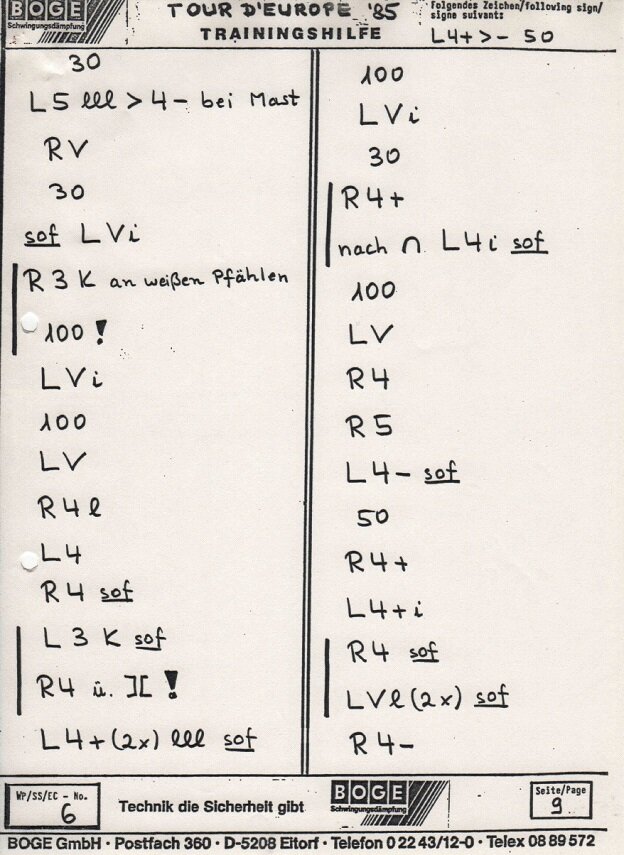 BOGE
Schwingungsdämpfung
TOUR D'EUROPE '85
TRAININGSHILFE
folgendes Zeichen/following sign/
signe suivants
L4+>- 50
30
L5 lll > 4- bei Mast
RV
30
sof LVi
R3K an weißen Pfählen
100!
LVi
100
LV
R4l
L4
R4 sof
L3K sof
R4 ü. ][ !
L4+(2x) lll sof
100
LVi
30
R4+
nach ∩ L4i sof
100
LV
R4
R5
L4- sof
50
R4+
L4+i
R4 sof
LVl(2x) sof
R4-
WP/SS/EC - No.
6
Technik die Sicherheit gibt
BOGE
Schwingungsdämpfung
Seite/Page
9
BOGE GmbH · Postfach 360 · D-5208 Eitorf · Telefon 0 22 43/12-0 · Telex 08 89 572